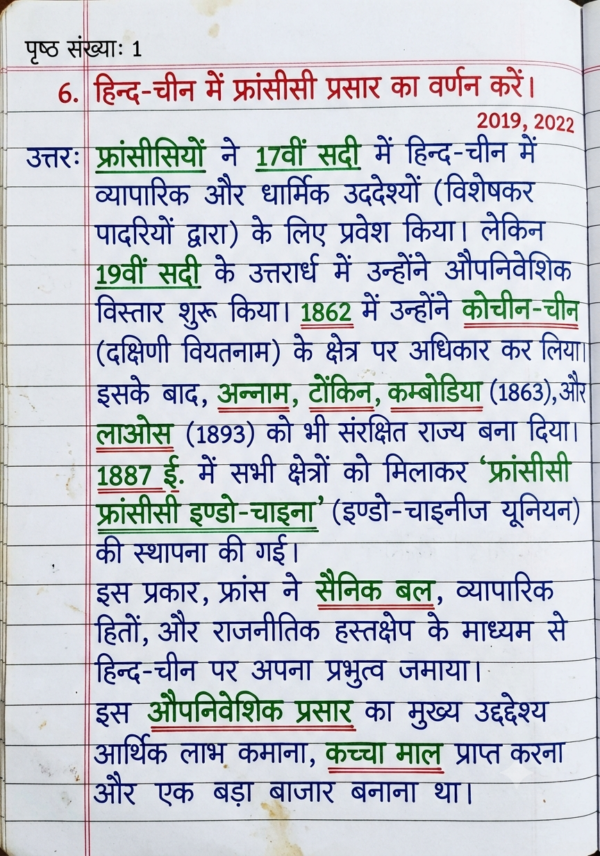 पृष्ठ संख्याः 1
6. हिन्द-चीन में फ्रांसीसी प्रसार का वर्णन करें।
2019, 2022
उत्तरः फ्रांसीसियों ने 17वीं सदी में हिन्द-चीन में
व्यापारिक और धार्मिक उददेश्यों (विशेषकर
पादरियों द्वारा) के लिए प्रवेश किया। लेकिन
19वीं सदी के उत्तरार्ध में उन्होंने औपनिवेशिक
विस्तार शुरू किया। 1862 में उन्होंने कोचीन-चीन
(दक्षिणी वियतनाम) के क्षेत्र पर अधिकार कर लिया।
इसके बाद, अन्नाम, टोंकिन, कम्बोडिया (1863),और
लाओस (1893) को भी संरक्षित राज्य बना दिया।
1887 ई. में सभी क्षेत्रों को मिलाकर ‘फ्रांसीसी
फ्रांसीसी इण्डो-चाइना’ (इण्डो-चाइनीज यूनियन)
की स्थापना की गई।
इस प्रकार, फ्रांस ने सैनिक बल, व्यापारिक
हितों, और राजनीतिक हस्तक्षेप के माध्यम से
हिन्द-चीन पर अपना प्रभुत्व जमाया।
इस औपनिवेशिक प्रसार का मुख्य उद्ददेश्य
आर्थिक लाभ कमाना, कच्चा माल प्राप्त करना
और एक बड़ा बाजार बनाना था।